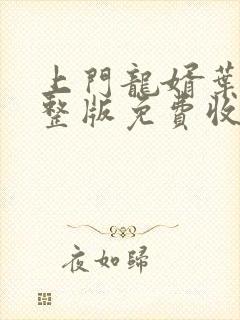 上門龍婿葉
整版免費收
夜如歸